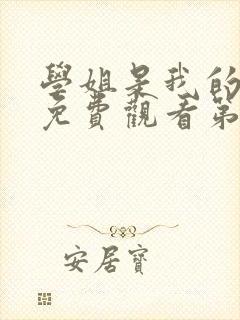 學姐呆我的
免費觀看第
安居寶